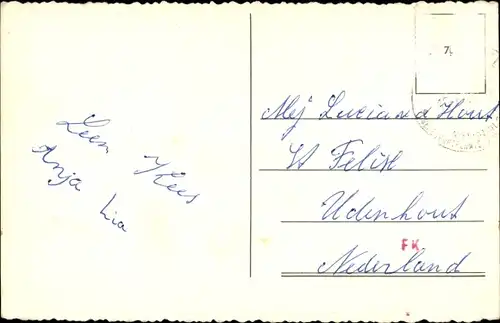 Leen
Kees
Anja Lia
7
Mej Luciana v Hout
St Felix
Udenhout
FK
Nederland